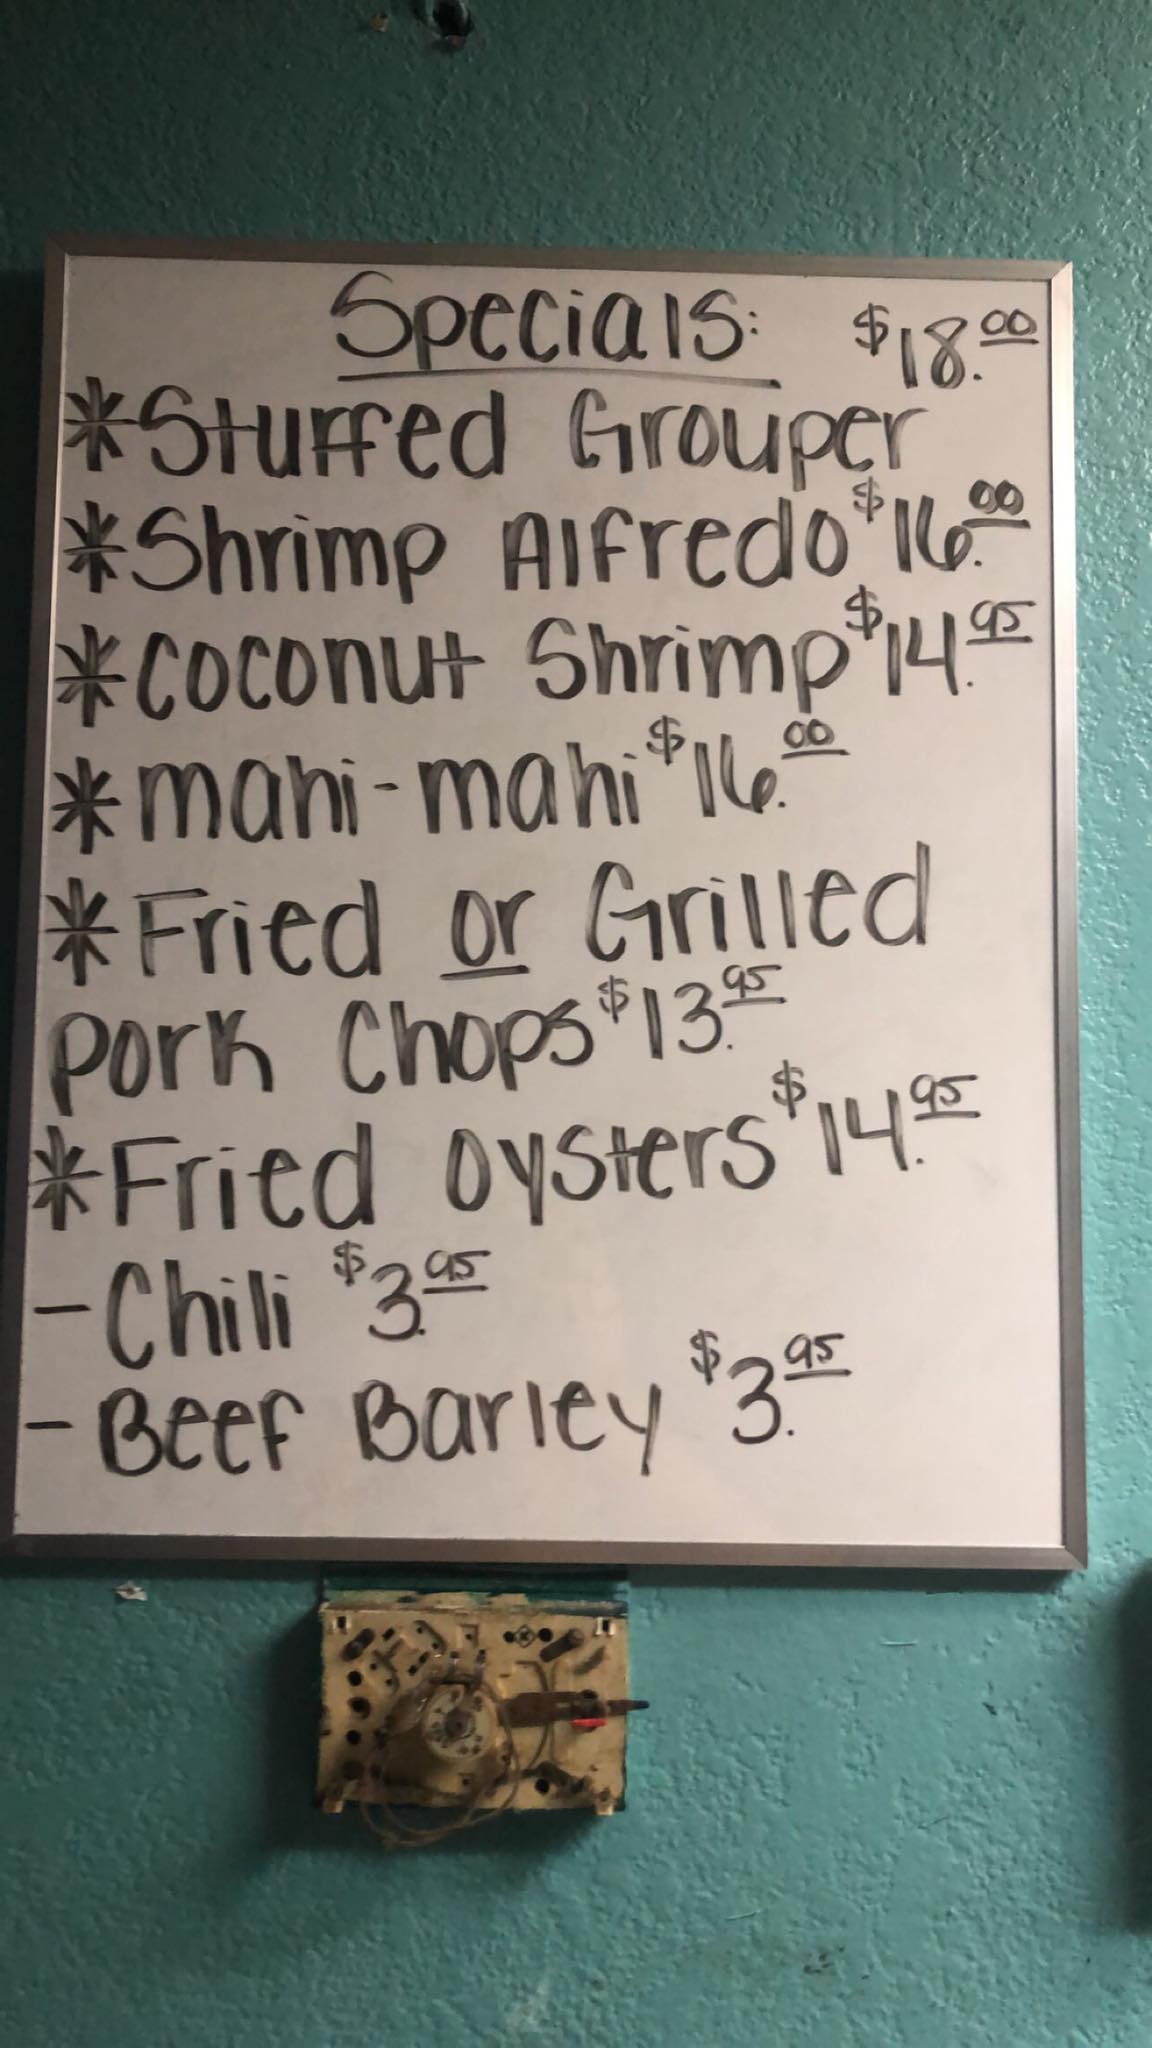 Specials: $18.00
*Stuffed Grouper
*Shrimp Alfredo $16.00
*Coconut Shrimp $14.95
*mahi-mahi $16.00
*Fried or Grilled
Pork Chops $13.95
*Fried Oysters $14.95
-Chili $3.95
-Beef Barley $3.95